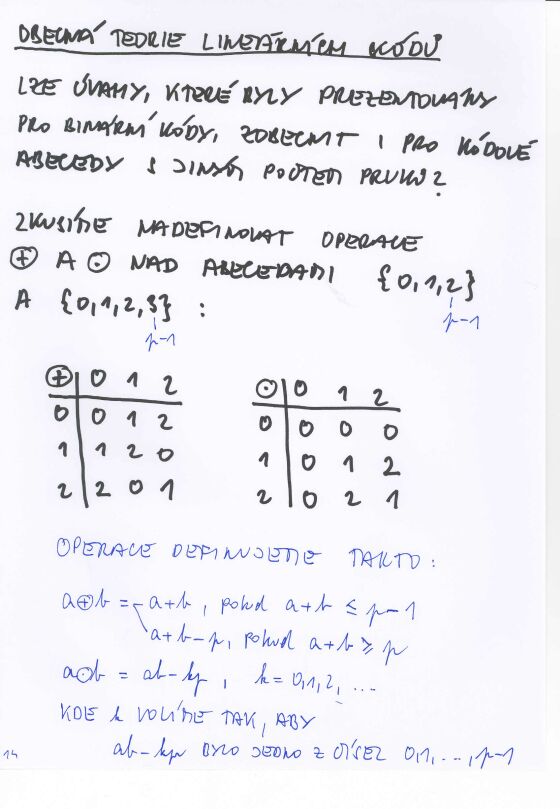 OBECNÁ TEORIE LINEÁRNÍCH KÓDŮ
LZE ÚVAHY, KTERÉ BYLY PREZENTOVÁNY
PRO BINÁRNÍ KÓDY, ZOBECNIT I PRO KÓDOVÉ
ABECEDY S JINÝM POČTEM PRVKŮ?
ZKUSÍME NADEFINOVAT OPERACE
⊕ A ⊙ NAD ABECEDAMI {0,1,2}
p-1
A {0,1,2,3} :
p-1
⊕ 0 1 2
0 0 1 2
1 1 2 0
2 2 0 1
⊙ 0 1 2
0 0 0 0
1 0 1 2
2 0 2 1
OPERACE DEFINUJEME TAKTO:
a⊕b = a+b, pokud a+b ≤ p-1
a+b-p, pokud a+b ≥ p
a⊙b = ab-kp, k=0,1,2,...
KDE k VOLÍME TAK, ABY
ab-kp BYLO JEDNO Z ČÍSEL 0,1,...,p-1
14